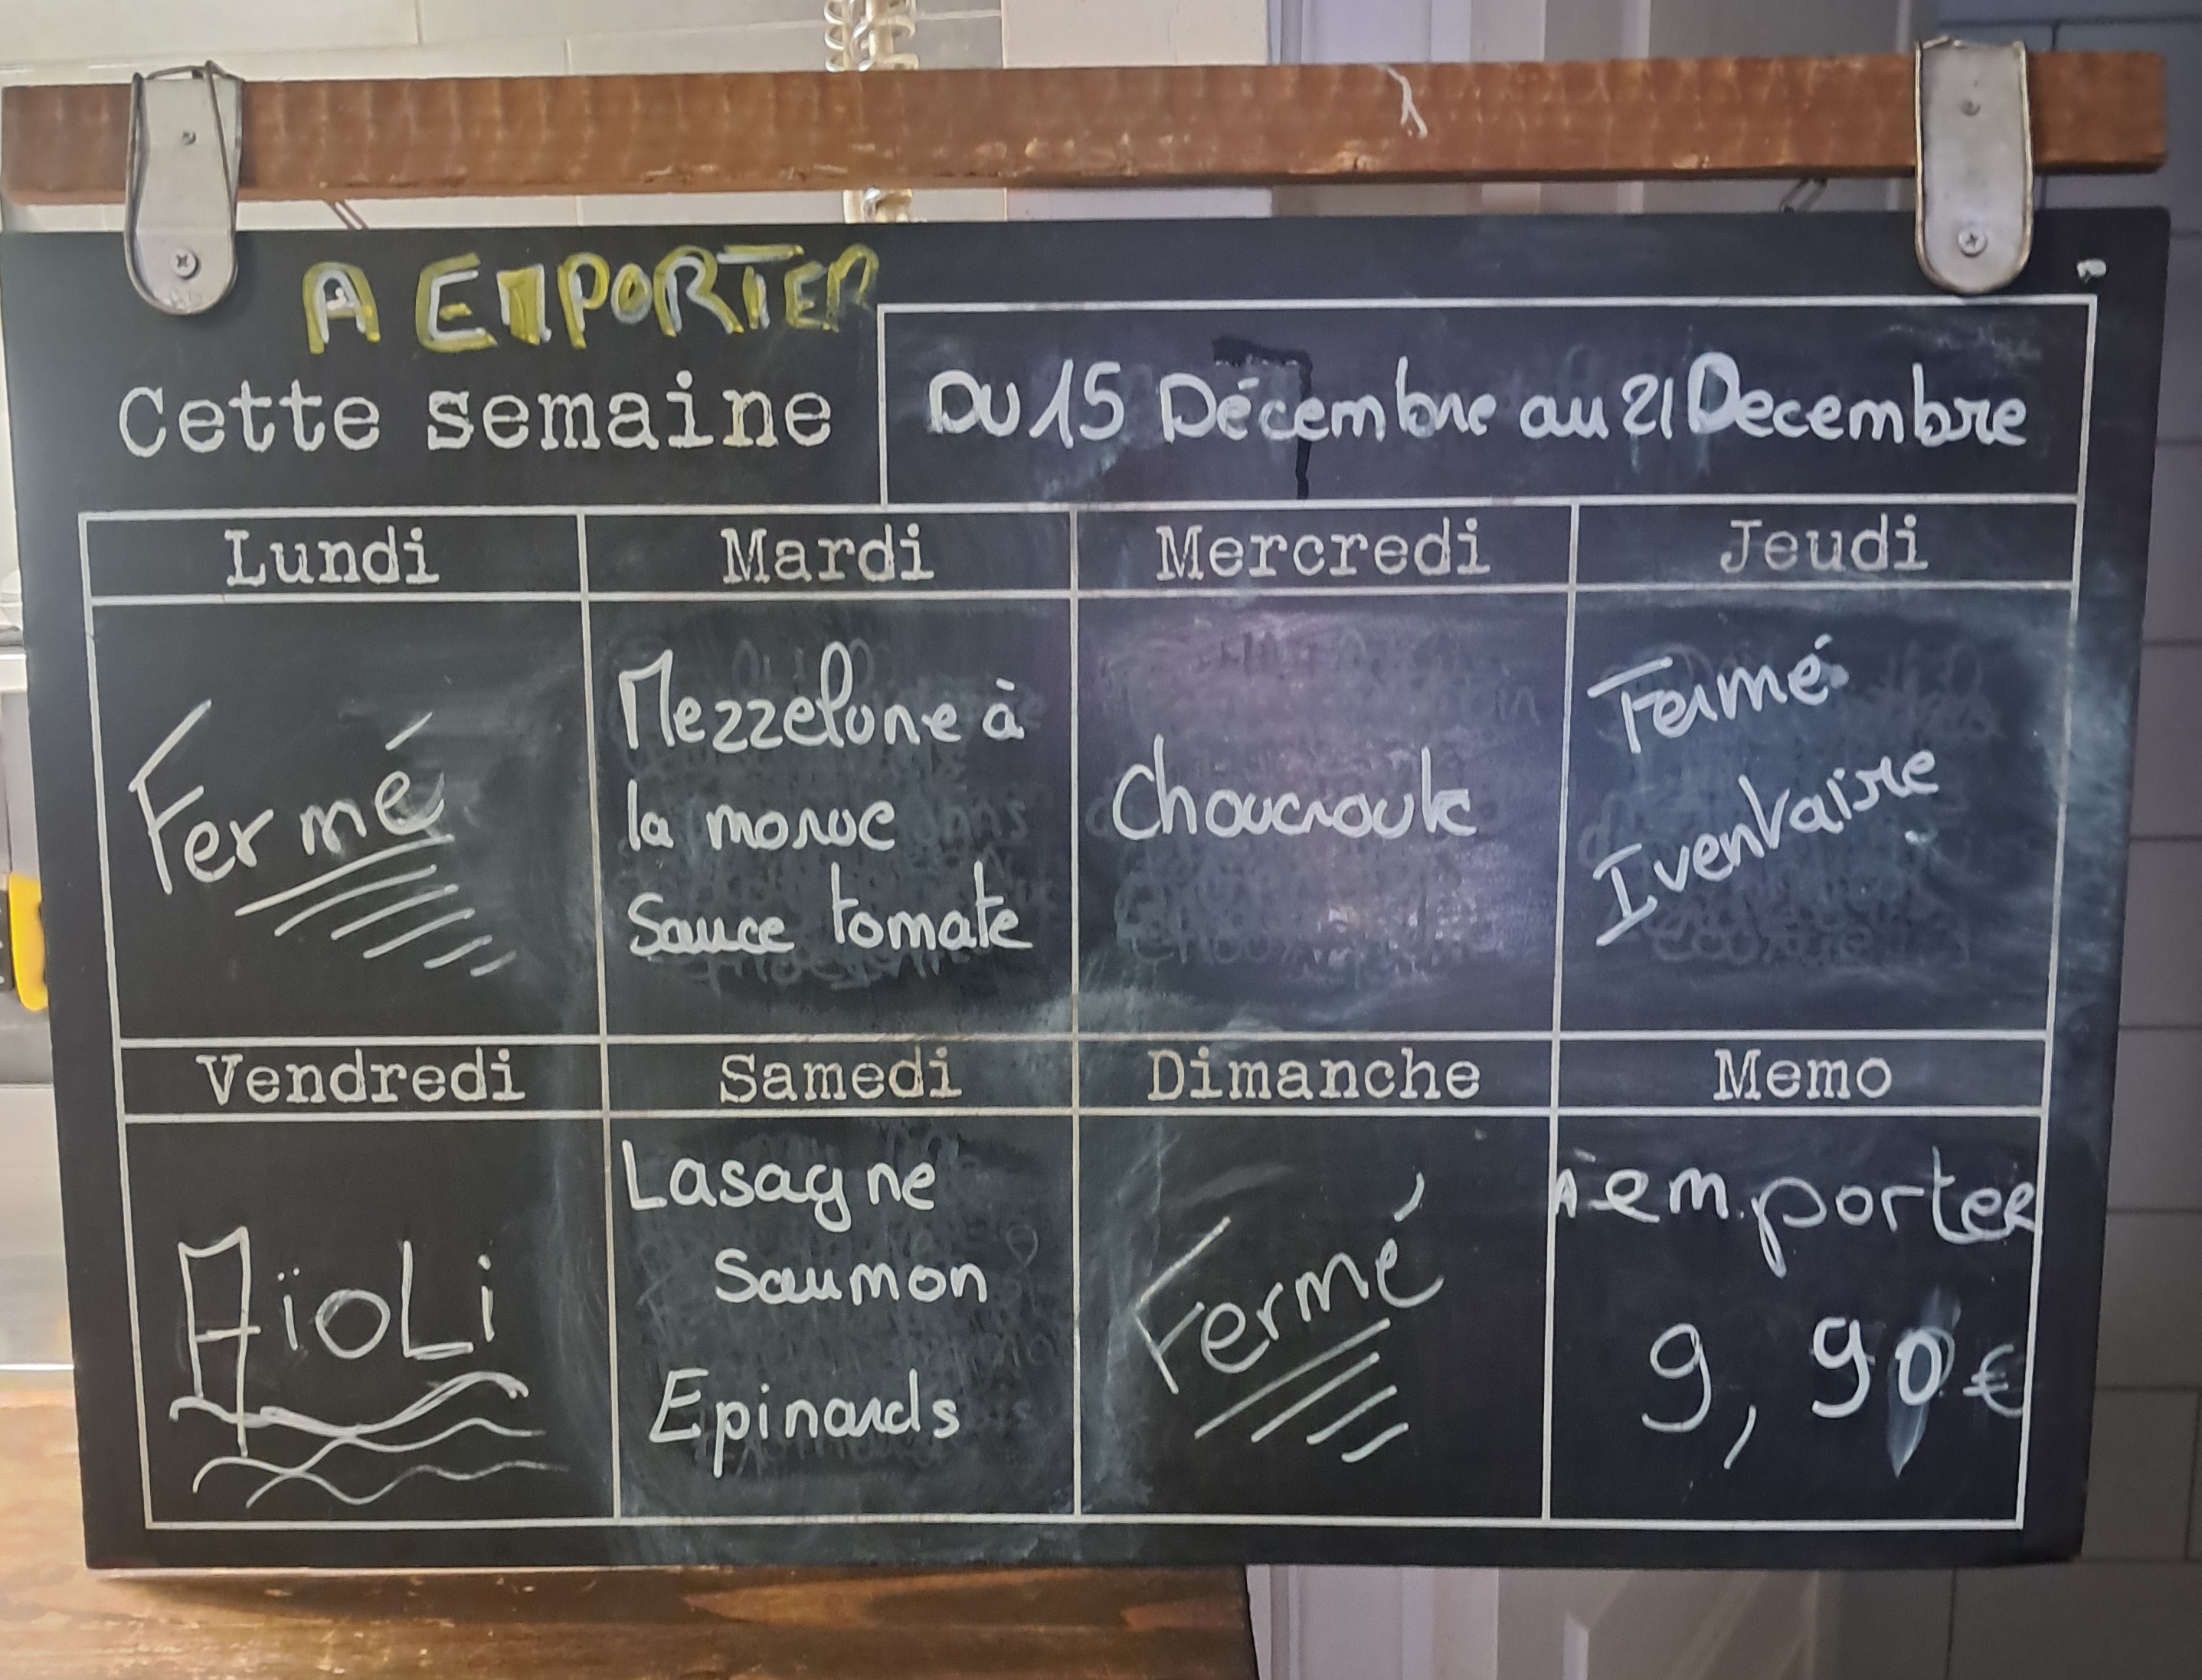 A EMPORTER
Cette semaine
DU 15 Décembre au 21 Decembre
Lundi
Mardi
Mercredi
Jeudi
Fermé
Mezzelune à
la morue
Sauce tomate
Choucroute
Fermé
Iventaire
Vendredi
Samedi
Dimanche
Memo
AïoLi
Lasagne
Saumon
Epinards
Fermé
A emporter
9,90€